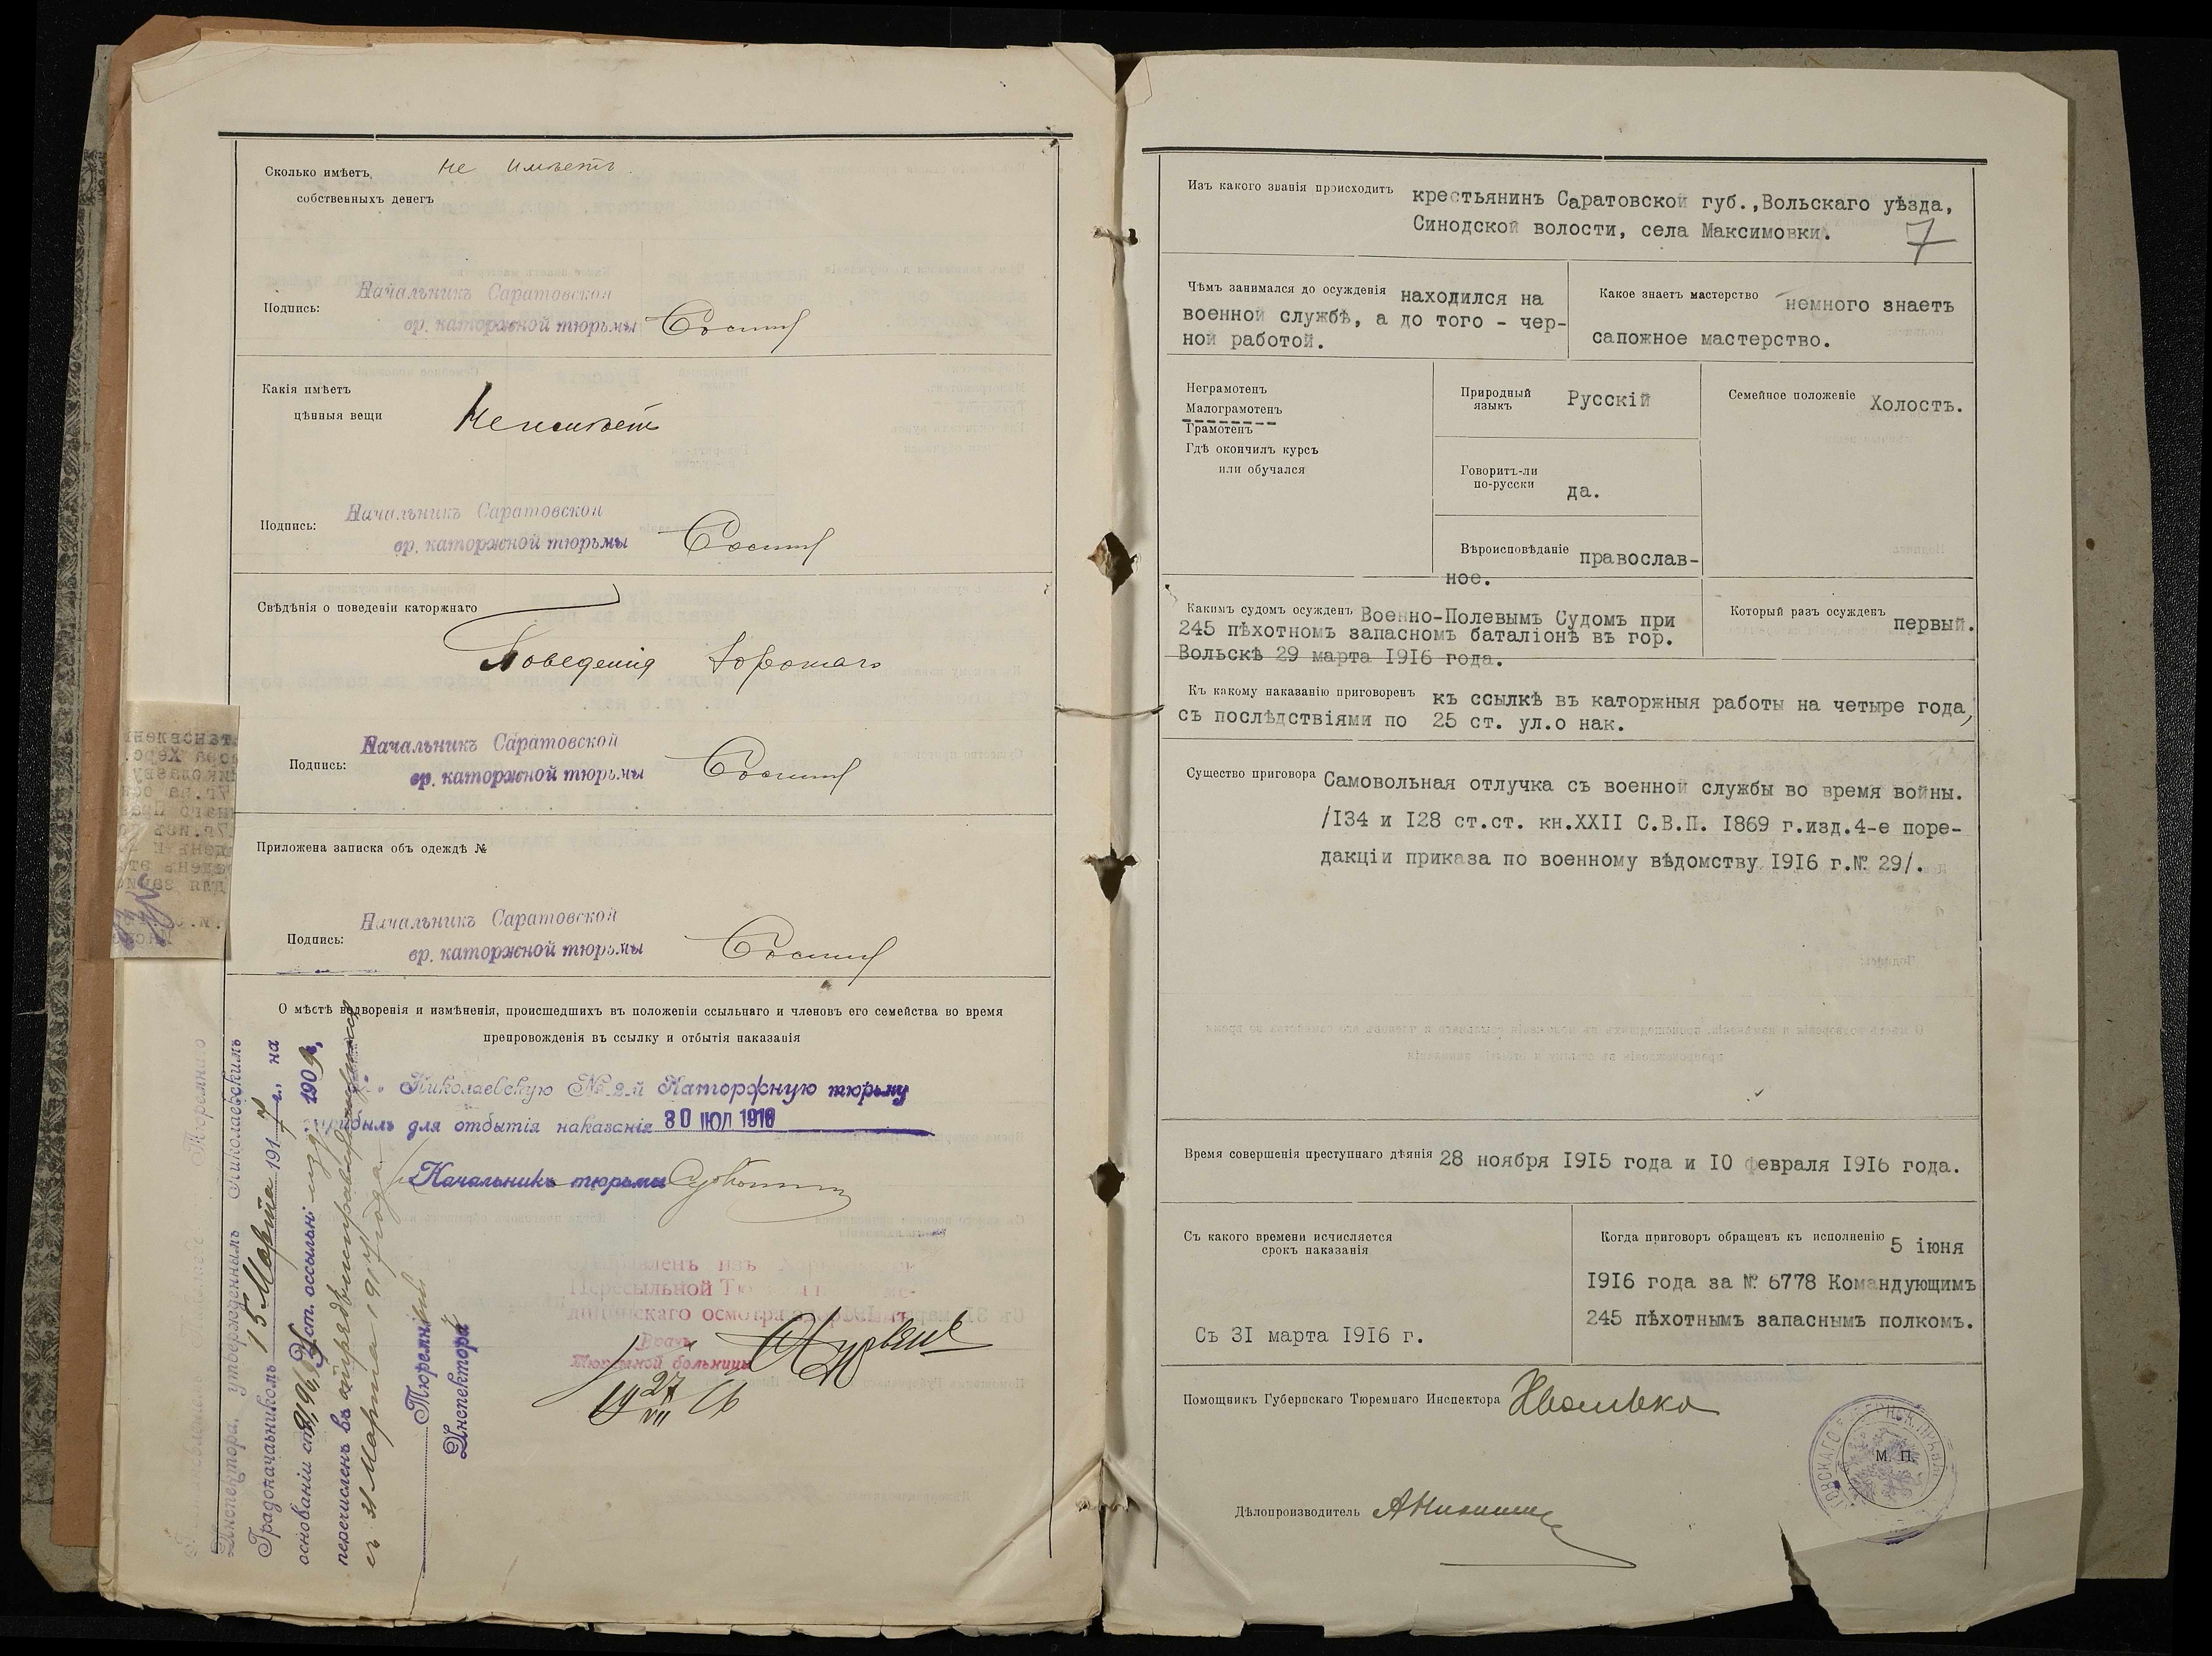 Сколько имѣетъ не имѣетъ
собственныхъ денегъ
Начальникъ Саратовской
Подпись: вр. каторжной тюрьмы
Какія имѣетъ
цѣнныя вещи Не имѣетъ
Начальникъ Саратовской
Подпись: вр. каторжной тюрьмы
Свѣдѣнія о поведеніи каторжнаго
Поведенія хорошаго
Начальникъ Саратовской
Подпись: вр. каторжной тюрьмы
Приложена записка объ одеждѣ №
Начальникъ Саратовской
Подпись: вр. каторжной тюрьмы
О мѣстѣ водворенія и измѣненія, происшедшихъ въ положеніи ссыльнаго и членовъ его семейства во время
препровожденія въ ссылку и отбытія наказанія
Николаевскую № 2-й Каторжную тюрьму
прибылъ для отбытія наказанія 30 ІЮЛ 1916
Начальникъ тюрьмы
изъ
Пересыльной
дицинскаго осмотра
Врачъ
Тюремной больницы
19 27/VII 16
Тюремнаго
Инспектора, утвержденнымъ Николаевскимъ
Градоначальникомъ 15 Марта 1917 г. на
основаніи ст. Уст. о ссыльн. изд. 1909 г.
перечисленъ въ
съ 31 Марта 1917 года
Тюремный
Инспекторъ
Изъ какого званія происходитъ крестьянинъ Саратовской губ.,Вольскаго уѣзда,
Синодской волости, села Максимовки.
7
Чѣмъ занимался до осужденія находился на
военной службѣ, а до того - чер-
ной работой.
Какое знаетъ мастерство немного знаетъ
сапожное мастерство.
Неграмотенъ
Малограмотенъ
Грамотенъ
Гдѣ окончилъ курсъ
или обучался
Природный
языкъ Русскій
Говоритъ-ли
по-русски да.
Вѣроисповѣданіе православ-
ное.
Семейное положеніе Холостъ.
Какимъ судомъ осужденъ Военно-Полевымъ Судомъ при
245 пѣхотномъ запасномъ баталіонѣ въ гор.
Вольскѣ 29 марта 1916 года.
Который разъ осужденъ первый.
Къ какому наказанію приговоренъ къ ссылкѣ въ каторжныя работы на четыре года,
съ послѣдствіями по 25 ст. ул.о нак.
Существо приговора Самовольная отлучка съ военной службы во время войны.
/134 и 128 ст.ст. кн.XXII С.В.П. 1869 г.изд.4-е поре-
дакціи приказа по военному вѣдомству 1916 г.№ 29/.
Время совершенія преступнаго дѣянія 28 ноября 1915 года и 10 февраля 1916 года.
Съ какого времени исчисляется
срокъ наказанія
Съ 31 марта 1916 г.
Когда приговоръ обращенъ къ исполненію 5 іюня
1916 года за № 6778 Командующимъ
245 пѣхотнымъ запаснымъ полкомъ.
Помощникъ Губернскаго Тюремнаго Инспектора
М. П.
Дѣлопроизводитель